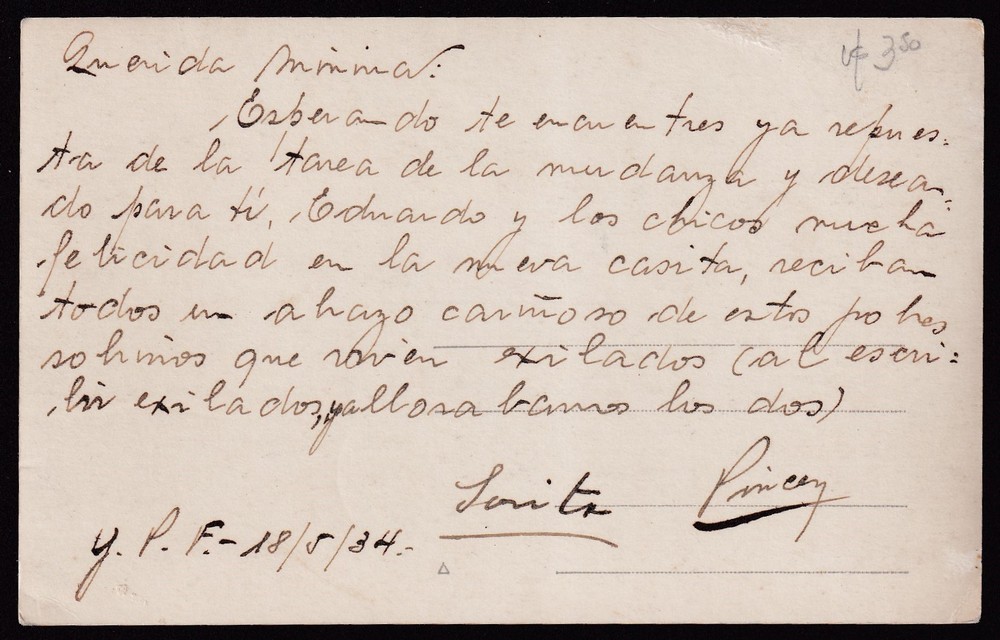 Querida Mimina:
3 50
Esperando te encuentres ya repues-
ta de la tarea de la mudanza y desea-
do para tí, Eduardo y los chicos mucha
felicidad en la nueva casita, reciban
todos un abrazo cariñoso de estos pobres
sobrinos que viven exilados (al escri-
bir exilados, ya llorabamos los dos)
Pincey
Y. P. F.- 18/5/34.-